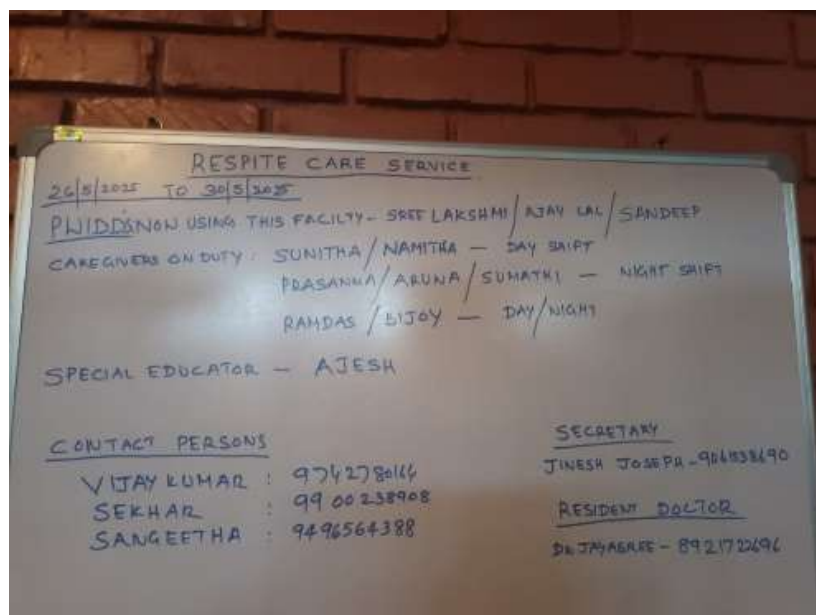 RESPITE CARE SERVICE
26/5/2025 TO 30/5/2025
PWIDDS NOW USING THIS FACILTY - SREE LAKSHMI / AJAY LAL / SANDEEP
CAREGIVERS ON DUTY : SUNITHA / NAMITHA - DAY SHIFT
PRASANNA / ARUNA / SUMATHI - NIGHT SHIFT
RAMDAS / BIJOY - DAY/NIGHT
SPECIAL EDUCATOR - AJESH
CONTACT PERSONS
VIJAY KUMAR :
SEKHAR : 9900238908
SANGEETHA : 9496564388
SECRETARY
JINESH JOSEPH -
RESIDENT DOCTOR
DR. JAYASREE -